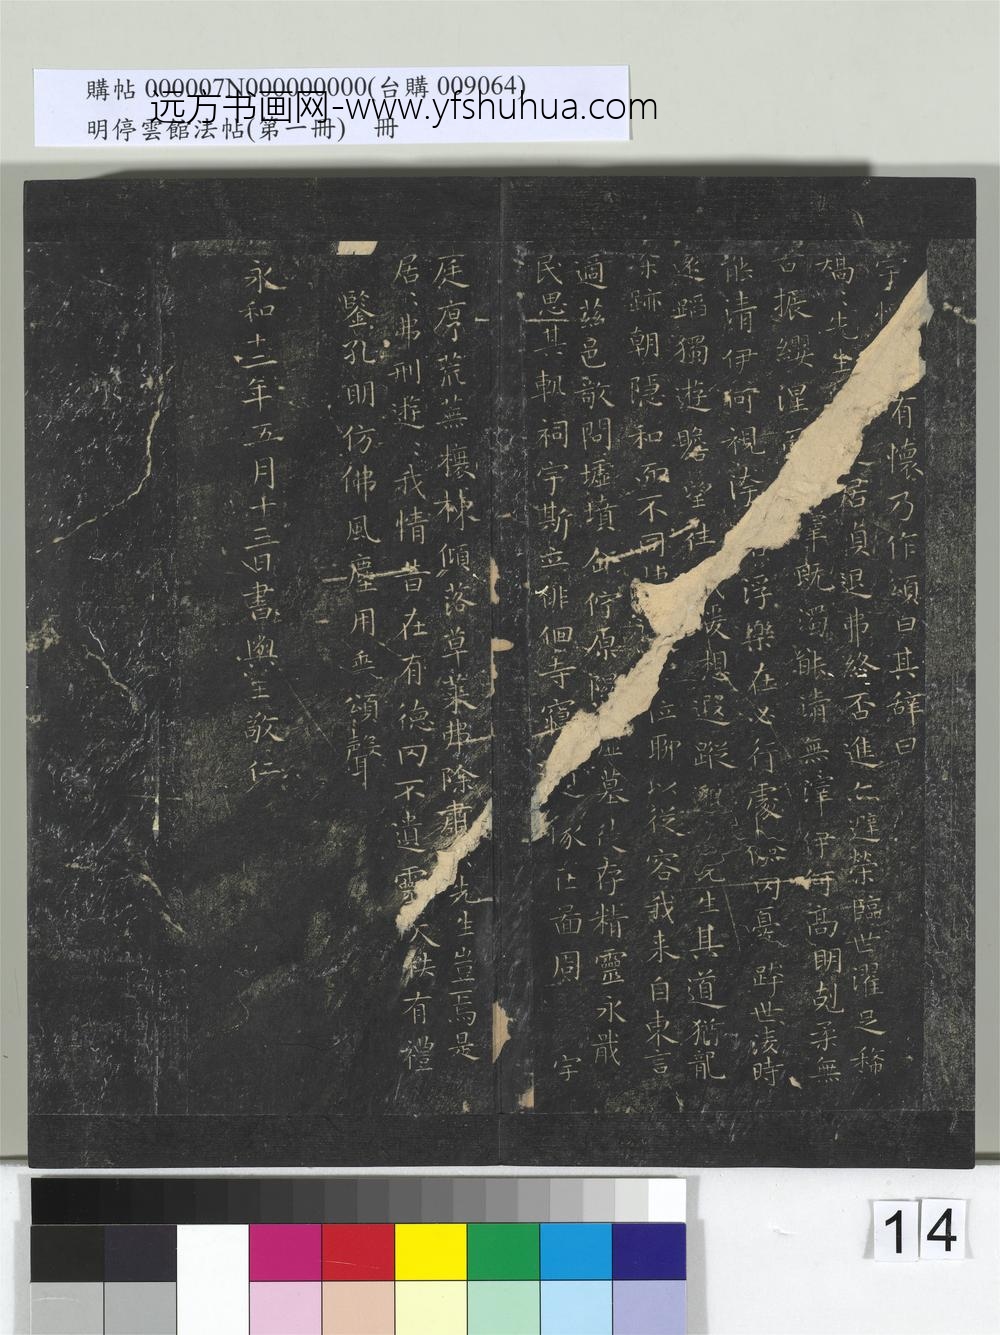 購帖 000007N000000000(台購 009064)
远方书画网-www.yfshuhua.com
明停雲館法帖(第一冊) 冊
字 有懷乃作頌曰其辭曰
先生 居貞退弗終否進亦避榮臨世濯足稀
古振纓涅 既濁能清無滓伊何高明剋柔無
能清伊何視汙 浮樂在必行處儉罔憂跨世淩時
遠蹈獨遊瞻望往 援想遐蹤 先生其道猶龍
染跡朝隱和而不同棲 位聊以從容我来自東言
適茲邑敬問墟墳企佇原隰 墓徒存精靈永戢
民思其軌祠宇斯立徘徊寺寢 啚周 宇
庭序荒蕪榱棟傾落草萊弗除肅ミ先生豈焉是
居ミ弗刑遊ミ我情昔在有德罔不遺靈天秩有禮
鑒孔明仿佛風塵用垂頌聲
永和十二年五月十三日書與王敬仁
14